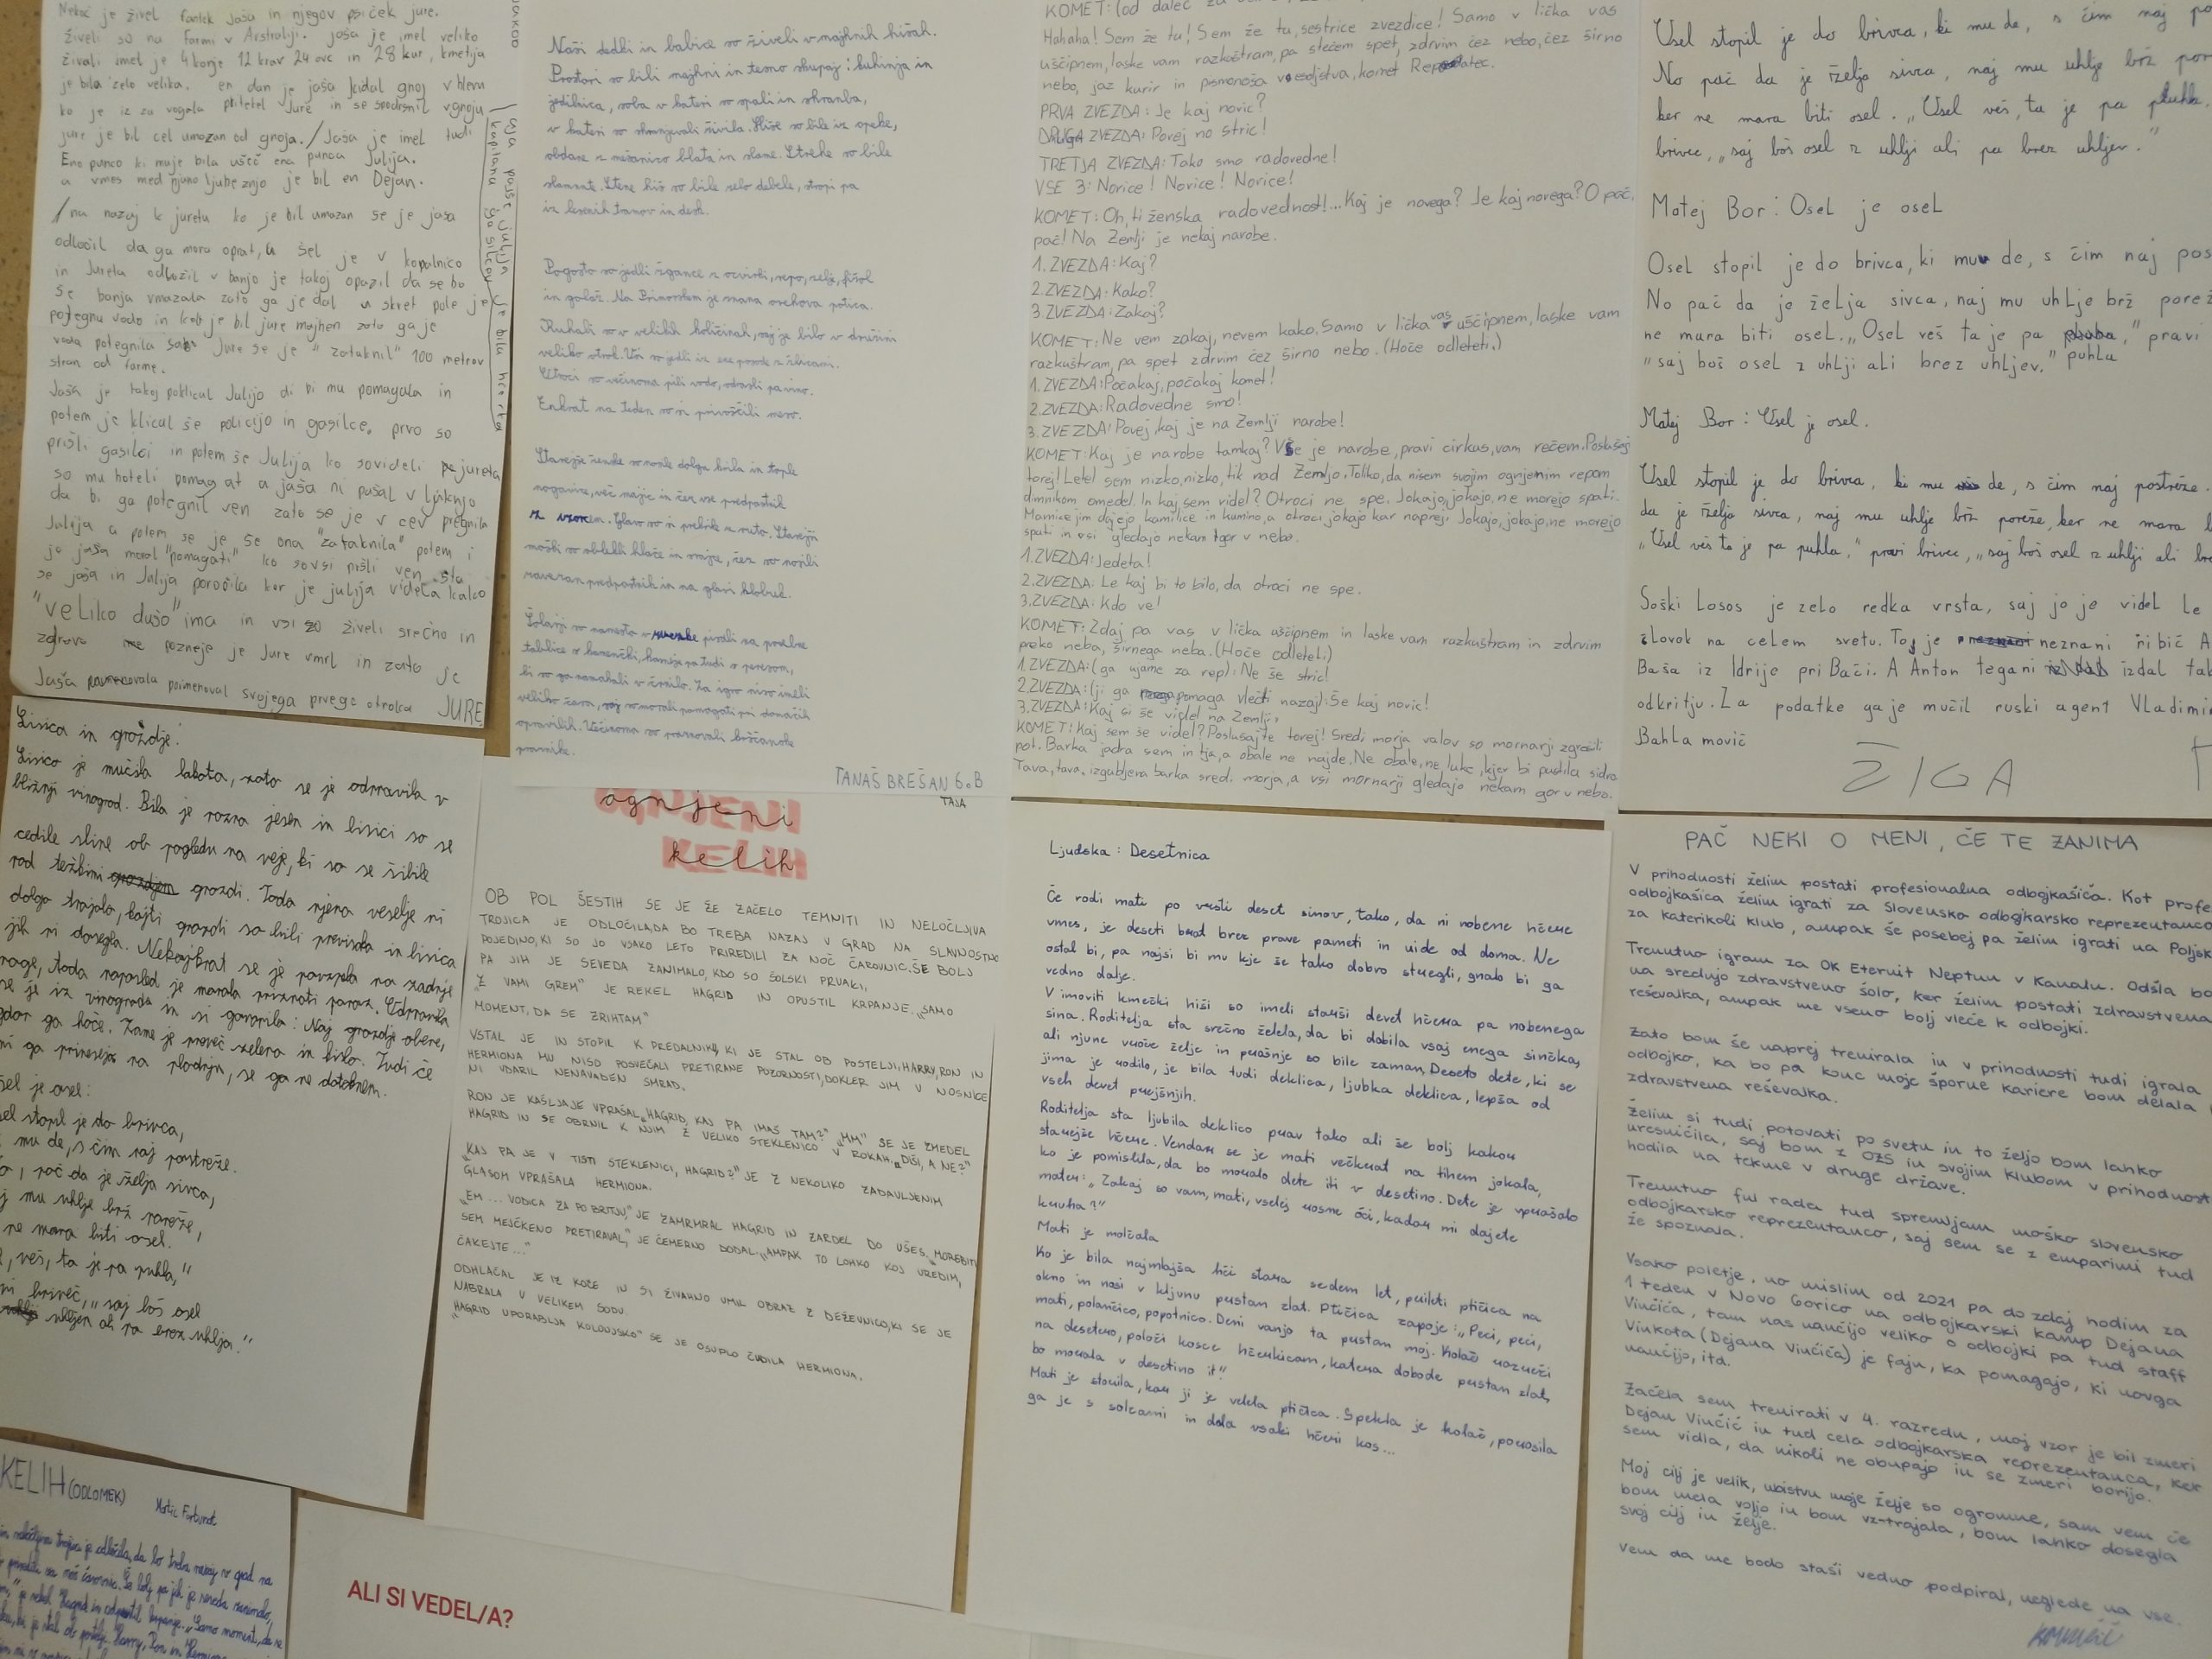 Nekoč je živel fantek Jaša in njegov psiček jure.
živeli so na farmi v Avstraliji. jaša je imel veliko
živali imel je 4 konje 12 krav 24 ovc in 28 kur, kmetija
je bila zelo velika. en dan je jaša kidal gnoj v hlevu
ko je iz za vogala Jure in se spodrsnil v gnoju
jure je bil cel umazan od gnoja. / Jaša je imel tudi
Eno punco ki muje bila ušeč ena punca Julija.
a vmes med njuno ljubeznijo je bil en Dejan.
/ na nazaj k juretu ko je bil umazan se je jaša
odločil da ga mora oprat, šel je v kopalnico
in Jureta odložil v banjo je takoj opazil da se bo
še banja umazala zato ga je dal u skret pole je
potegnu vodo in je bil jure majhen zato ga je
voda potegnila Jure se je "zataknil" 100 metrov
stran od farme.
Jaša je takoj poklical Julijo di bi mu pomagala in
potem je klical še policijo in gasilce, prvo so
prišli gasilci in potem še Julija ko so videli jureta
so mu hoteli pomagat a jaša ni pašal v luknjo
da bi ga potegnil ven zato se je v cev
Julija a potem se je še ona "zataknila" potem i
jo jaša moral "pomagati" ko so vsi pišli ven sta
se jaša in Julija poročila ker je julija videla kako
"veliko dušo" ima in vsi so živeli srečno in
zdravo pozneje je Jure vmrl in zato je
Jaša poimenoval svojega prvega otroka JURE
Naši dedki in babice so živeli v majhnih hišah.
Prostori so bili majhni in temno skupaj: kuhinja in
jedilnica, soba v kateri so spali in shramba,
v kateri so shranjevali živila. Hiše so bile iz opeke,
obdane z mešanico blata in slame. Strehe so bile
slamnate. Stene hiš so bile zelo debele, stropi pa
iz lesenih tramov in desk.
Pogosto so jedli žgance z ocvirki, repo, zelje, fižol
in golaž. Na Primorskem je znana orehova potica.
Kuhali so v velikih količinah, saj je bilo v družini
veliko otrok. Vsi so jedli iz ene posode z žlicami.
Otroci so večinoma pili vodo, odrasli pa vino.
Enkrat na teden so si privoščili meso.
Starejše ženske so nosile dolga krila in tople
nogavice, več majic in čez vse predpasnik
z vzorcem. Glavo so si pokrile z ruto. Starejši
moški so oblekli hlače in srajce, čez so nosili
zavezan predpasnik in na glavi klobuk.
Šolarji so namesto v zvezke pisali na posebne
tablice s kamenčki, kasneje pa tudi s peresom,
ki so ga namakali v črnilo. Za igro niso imeli
veliko časa, saj so morali pomagati pri domačih
opravilih. Večinoma so praznovali krščanske
praznike.
TANAŠ BREŠAN 6.B
KOMET: (od daleč
Hahaha! Sem že tu! Sem že tu, sestrice zvezdice! Samo v lička vas
uščipnem, laske vam razkuštram, pa stečem spet, zdrvim čez nebo, čez širno
nebo, jaz kurir in pismonoša vesoljstva, komet Repatec.
PRVA ZVEZDA: Je kaj novic?
DRUGA ZVEZDA: Povej no stric!
TRETJA ZVEZDA: Tako smo radovedne!
VSE 3: Norice! Norice! Norice!
KOMET: Oh, ti ženska radovednost!... Kaj je novega? Je kaj novega? O pač,
pač! Na Zemlji je nekaj narobe.
1. ZVEZDA: Kaj?
2. ZVEZDA: Kako?
3. ZVEZDA: Zakaj?
KOMET: Ne vem zakaj, nevem kako. Samo v lička vas uščipnem, laske vam
razkuštram, pa spet zdrvim čez širno nebo. (Hoče odleteti.)
1. ZVEZDA: Počakaj, počakaj komet!
2. ZVEZDA: Radovedne smo!
3. ZVEZDA: Povej, kaj je na Zemlji narobe!
KOMET: Kaj je narobe tamkaj? Vse je narobe, pravi cirkus, vam rečem. Poslušaj
torej! Letel sem nizko, nizko, tik nad Zemljo. Toliko, da nisem svojim ognjenim repom
dimnikom omedel. In kaj sem videl? Otroci ne spe. Jokajo, jokajo, ne morejo spati.
Mamice jim dajejo kamilice in kumino, a otroci jokajo kar naprej. Jokajo, jokajo, ne morejo
spati in vsi gledajo nekam gor v nebo.
1. ZVEZDA: Jedeta!
2. ZVEZDA: Le kaj bi to bilo, da otroci ne spe.
3. ZVEZDA: Kdo ve!
KOMET: Zdaj pa vas v lička uščipnem in laske vam razkuštram in zdrvim
preko neba, širnega neba. (Hoče odleteti.)
1. ZVEZDA: (ga ujame za rep): Ne še stric!
2. ZVEZDA: (ji ga pomaga vlečti nazaj): Še kaj novic!
3. ZVEZDA: Kaj si še videl na Zemlji?
KOMET: Kaj sem še videl? Poslušajte torej! Sredi morja valov so mornarji zgrešili
pot. Barka jadra sem in tja, a obale ne najde. Ne obale, ne luke, kjer bi pustila sidro.
Tava, tava, izgubljena barka sredi morja, a vsi mornarji gledajo nekam gor v nebo.
Osel stopil je do brivca, ki mu de, s čim naj
No pač da je želja sivca, naj mu uhlje brž
ker ne mara biti osel. "Osel veš, ta je pa puhla,
brivec, "saj boš osel z uhlji ali pa brez uhljev."
Matej Bor: Osel je osel
Osel stopil je do brivca, ki mu de, s čim naj
No pač da je želja sivca, naj mu uhlje brž
ne mara biti osel. "Osel veš ta je pa puhla," pravi
"saj boš osel z uhlji ali brez uhljev."
Matej Bor: Osel je osel.
Osel stopil je do brivca, ki mu de, s čim naj postreže.
da je želja sivca, naj mu uhlje brž poreže, ker ne mara
"Osel veš to je pa puhla," pravi brivec, "saj boš osel z uhlji ali
Soški Losos je zelo redka vrsta, saj jo je videl le
človok na celem svetu. To je neznani ribič
Baša iz Idrije pri Bači. A Anton tega ni izdal
odkritju. Za podatke ga je mučil ruski agent Vladimir
Bahla movič
ŽIGA
Lisica in grozdje:
Lisico je mučila lakota, zato se je odpravila v
bližnji vinograd. Bila je pozna jesen in lisici so se
cedile sline ob pogledu na veje, ki so se šibile
pod težkimi grozdi. Toda njeno veselje ni
dolgo trajalo, kajti grozdi so bili previsoko in lisica
jih ni dosegla. Nekajkrat se je povzpela na zadnje
noge, toda naposled je morala priznati poraz. Odpravila
se je iz vinograda in si govorila: Naj grozdje obere,
kdor ga hoče. Zame je preveč zeleno in kislo. Tudi če
mi ga prinesejo na pladnju, se ga ne dotaknem.
osel je osel:
osel stopil je do brivca,
mu de, s čim naj postreže.
pač da je želja sivca,
mu uhlje brž poreže,
ne mara biti osel.
veš, ta je pa puhla,"
brivec, "saj boš osel
uhljev ali pa brez uhlja."
TAJA
OGNJENI
KELIH
ognjeni
kelih
OB POL ŠESTIH SE JE ŽE ZAČELO TEMNITI IN NELOČLJIVA
TROJICA JE ODLOČILA, DA BO TREBA NAZAJ V GRAD NA SLAVNOSTNO
POJEDINO, KI SO JO VSAKO LETO PRIREDILI ZA NOČ ČAROVNIC. ŠE BOLJ
PA JIH JE SEVEDA ZANIMALO, KDO SO ŠOLSKI PRVAKI,
"Z VAMI GREM" JE REKEL HAGRID IN OPUSTIL KRPANJE. "SAMO
MOMENT, DA SE ZRIHTAM"
VSTAL JE IN STOPIL K PREDALNIKU, KI JE STAL OB POSTELJI, HARRY, RON IN
HERMIONA MU NISO POSVEČALI PRETIRANE POZORNOSTI, DOKLER JIM V NOSNICE
NI UDARIL NENAVADEN SMRAD.
RON JE KAŠLJAJE VPRAŠAL "HAGRID, KAJ PA IMAŠ TAM?" "MM" SE JE ZMEDEL
HAGRID IN SE OBRNIL K NJIM Z VELIKO STEKLENICO V ROKAH. "DIŠI, A NE?"
"KAJ PA JE V TISTI STEKLENICI, HAGRID?" JE Z NEKOLIKO ZADAVLJENIM
GLASOM VPRAŠALA HERMIONA.
"EM ... VODICA ZA PO BRITJU," JE ZAMRMRAL HAGRID IN ZARDEL DO UŠES. MOREBITI
SEM MEJČKENO PRETIRAVAL," JE ČEMERNO DODAL. "AMPAK TO LOHKO KOJ UREDIM,
ČAKEJTE ..."
ODHLAČAL JE IZ KOČE IN SI ŽIVAHNO UMIL OBRAZ Z DEŽEVNICO, KI SE JE
NABRALA V VELIKEM SODU.
"HAGRID UPORABLJA KOLONJSKO" SE JE OSUPLO ČUDILA HERMIONA.
Ljudska: Desetnica
Če rodi mati po vrsti deset sinov, tako, da ni nobene hčere
vmes, je deseti brat brez prave pameti in uide od doma. Ne
ostal bi, pa najsi bi mu kje še tako dobro stregli, gnalo bi ga
vedno dalje.
V imoviti kmečki hiši so imeli starši devet hčera pa nobenega
sina. Roditelja sta srčno želela, da bi dobila vsaj enega sinčka,
ali njune vroče želje in prošnje so bile zaman. Deseto dete, ki se
jima je rodilo, je bila tudi deklica, ljubka deklica, lepša od
vseh devet prejšnjih.
Roditelja sta ljubila deklico prav tako ali še bolj kakor
starejše hčere. Vendar se je mati večkrat na tihem jokala,
ko je pomislila, da bo moralo dete iti v desetino. Dete je vprašalo
mater: "Zakaj so vam, mati, vselej rosne oči, kadar mi dajete
kruha?"
Mati je molčala
Ko je bila najmlajša hči stara sedem let, prileti ptičica na
okno in nosi v kljunu prstan zlat. Ptičica zapoje: "Peci, peci,
mati, pogačico, popotnico. Deni vanjo ta prstan moj. Kolač razreži
na desetero, položi kosce hčerkicam, katera dobode prstan zlat,
bo morala v desetino it!"
Mati je storila, kar ji je velela ptičica. Spekla je kolač, porosila
ga je s solzami in dala vsaki hčeri kos...
PAČ NEKI O MENI, ČE TE ZANIMA
V prihodnosti želim postati profesionalna odbojkašica. Kot
odbojkašica želim igrati za Slovensko odbojkarsko reprezentanco
za katerikoli klub, ampak še posebej pa želim igrati na
Trenutno igram za OK Eternit Neptun v Kanalu. Odšla
na srednjo zdravstveno šolo, ker želim postati zdravstvena
reševalka, ampak me vseno bolj vleče k odbojki.
Zato bom še naprej trenirala in v prihodnosti tudi igrala
odbojko, ka bo pa konc moje športne kariere bom delala
zdravstvena reševalka.
Želim si tudi potovati po svetu in to željo bom lahko
uresničila, saj bom z OZS in svojim klubom v prihodnosti
hodila na tekme v druge države.
Trenutno ful rada tud spremljam moško slovensko
odbojkarsko reprezentanco, saj sem se z enparimi tud
že spoznala.
Vsako poletje, no mislim od 2021 pa do zdaj hodim za
1 teden v Novo Gorico na odbojkarski kamp Dejana
Vinčića, tam nas naučijo veliko o odbojki pa tud staff
Vinkota (Dejana Vinčića) je fajn, ka pomagajo, ki novga
naučijo, itd.
Začela sem trenirati v 4. razredu, moj vzor je bil zmeri
Dejan Vinčić in tud cela odbojkarska reprezentanca, ker
sem vidla, da nikoli ne obupajo in se zmeri borijo.
Moj cilj je velik, v bistvu moje želje so ogromne, sam vem če
bom mela voljo in bom vz-trajala, bom lahko dosegla
svoj cilj in želje.
Vem da me bodo starši vedno podpiral, neglede na vse.
KELIH (ODLOMEK)
Matic
ALI SI VEDEL/A?